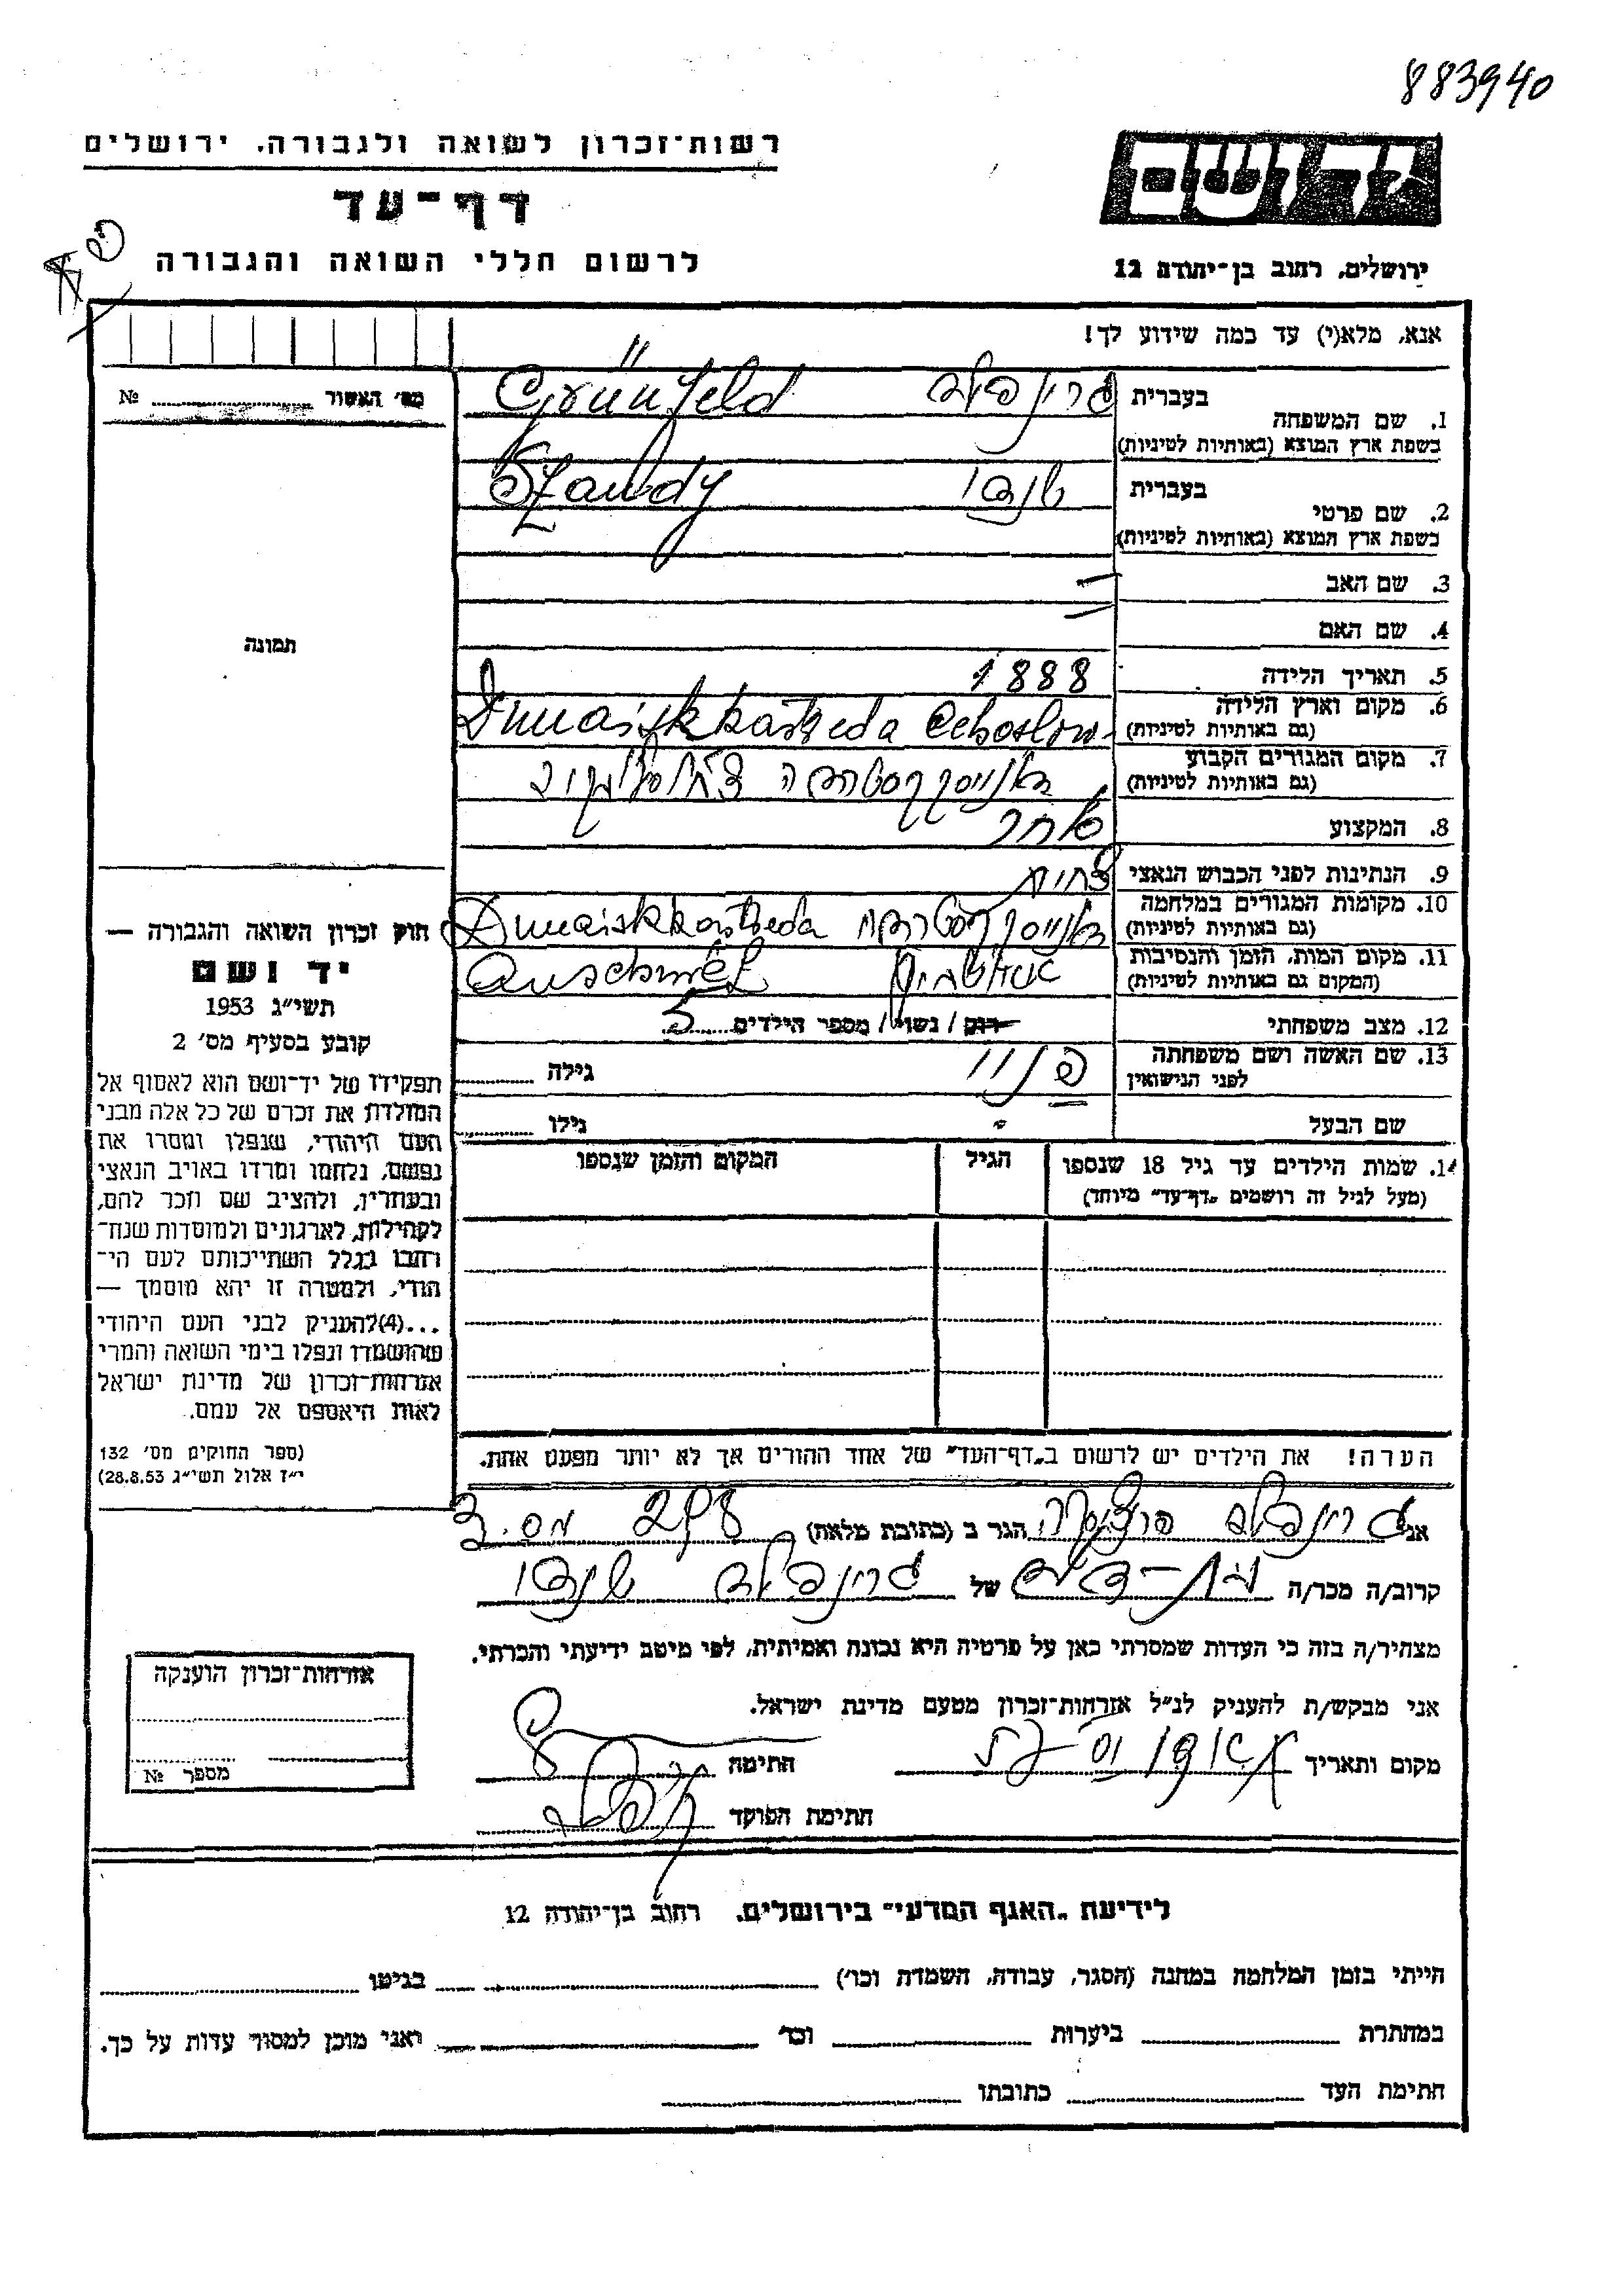 883940
רשות־זכרון לשואה ולגבורה, ירושלים
יד ושם
דף־עד
לרשום חללי השואה והגבורה
ירושלים, רחוב בן־יהודה 12
אנא, מלא(י) עד במה שידוע לך!
מס׳ האשור № 
תמונה
חוק זכרון השואה והגבורה —
יד ושם
תשי״ג 1953
קובע בסעיף מס׳ 2
תפקידו של יד־ושם הוא לאסוף אל
המולדת את זכרם של כל אלה מבני
העם היהודי, שנפלו ומסרו את
נפשם, נלחמו ומרדו באויב הנאצי
ובעוזריו, ולהציב שם וזכר להם,
לקהילות, לארגונים ולמוסדות שנח־
רבו בגלל השתייכותם לעם הי־
הודי, ולמטרה זו יהא מוסמך —
...(4)להעניק לבני העם היהודי
שהושמדו ונפלו בימי השואה והמרי
אזרחות־זכרון של מדינת ישראל
לאות היאספם אל עמם.
(ספר החוקים מס׳ 132
י״ז אלול תשי״ג 28.8.53)
1. שם המשפחה בעברית גרינפלד Grünfeld
בשפת ארץ המוצא (באותיות לטיניות)
2. שם פרטי בעברית שנדי Szandy
בשפת ארץ המוצא (באותיות לטיניות)
3. שם האב —
4. שם האם —
5. תאריך הלידה 1888
6. מקום וארץ הלידה Dunaiskkastreda Cehoslow-
(גם באותיות לטיניות)
7. מקום המגורים הקבוע
(גם באותיות לטיניות)
8. המקצוע סוחר
9. הנתינות לפני הכבוש הנאצי צ׳כית
10. מקומות המגורים במלחמה Dunaiskkastreda
(גם באותיות לטיניות)
11. מקום המות, הזמן והנסיבות אושוויץ Auschwitz
(המקום גם באותיות לטיניות)
12. מצב משפחתי רווק / נשוי / מספר הילדים 5
13. שם האשה ושם משפחתה פני גילה
לפני הנישואין
שם הבעל גילו
14. שמות הילדים עד גיל 18 שנספו הגיל המקום והזמן שנספו
(מעל לגיל זה רושמים „דף־עד״ מיוחד)
הערה! את הילדים יש לרשום ב„דף־העד״ של אחד ההורים אך לא יותר מפעם אחת.
אני גרינפלד הגר ב (כתובת מלאה)
קרוב/ה מכר/ה של גרינפלד שנדי
מצהיר/ה בזה כי העדות שמסרתי כאן על פרטיה היא נכונה ואמיתית, לפי מיטב ידיעתי והכרתי.
אני מבקש/ת להעניק לנ״ל אזרחות־זכרון מטעם מדינת ישראל.
מקום ותאריך חתימה
חתימת הפוקד
אזרחות־זכרון הוענקה
מספר №
לידיעת „האגף המדעי״ בירושלים, רחוב בן־יהודה 12
הייתי בזמן המלחמה במחנה (הסגר, עבודה, השמדה וכו׳) בגיטו
במחתרת ביערות וכו׳ ואני מוכן למסור עדות על כך.
חתימת העד כתובתו